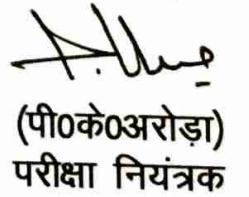 (पी0के0अरोड़ा)
परीक्षा नियंत्रक